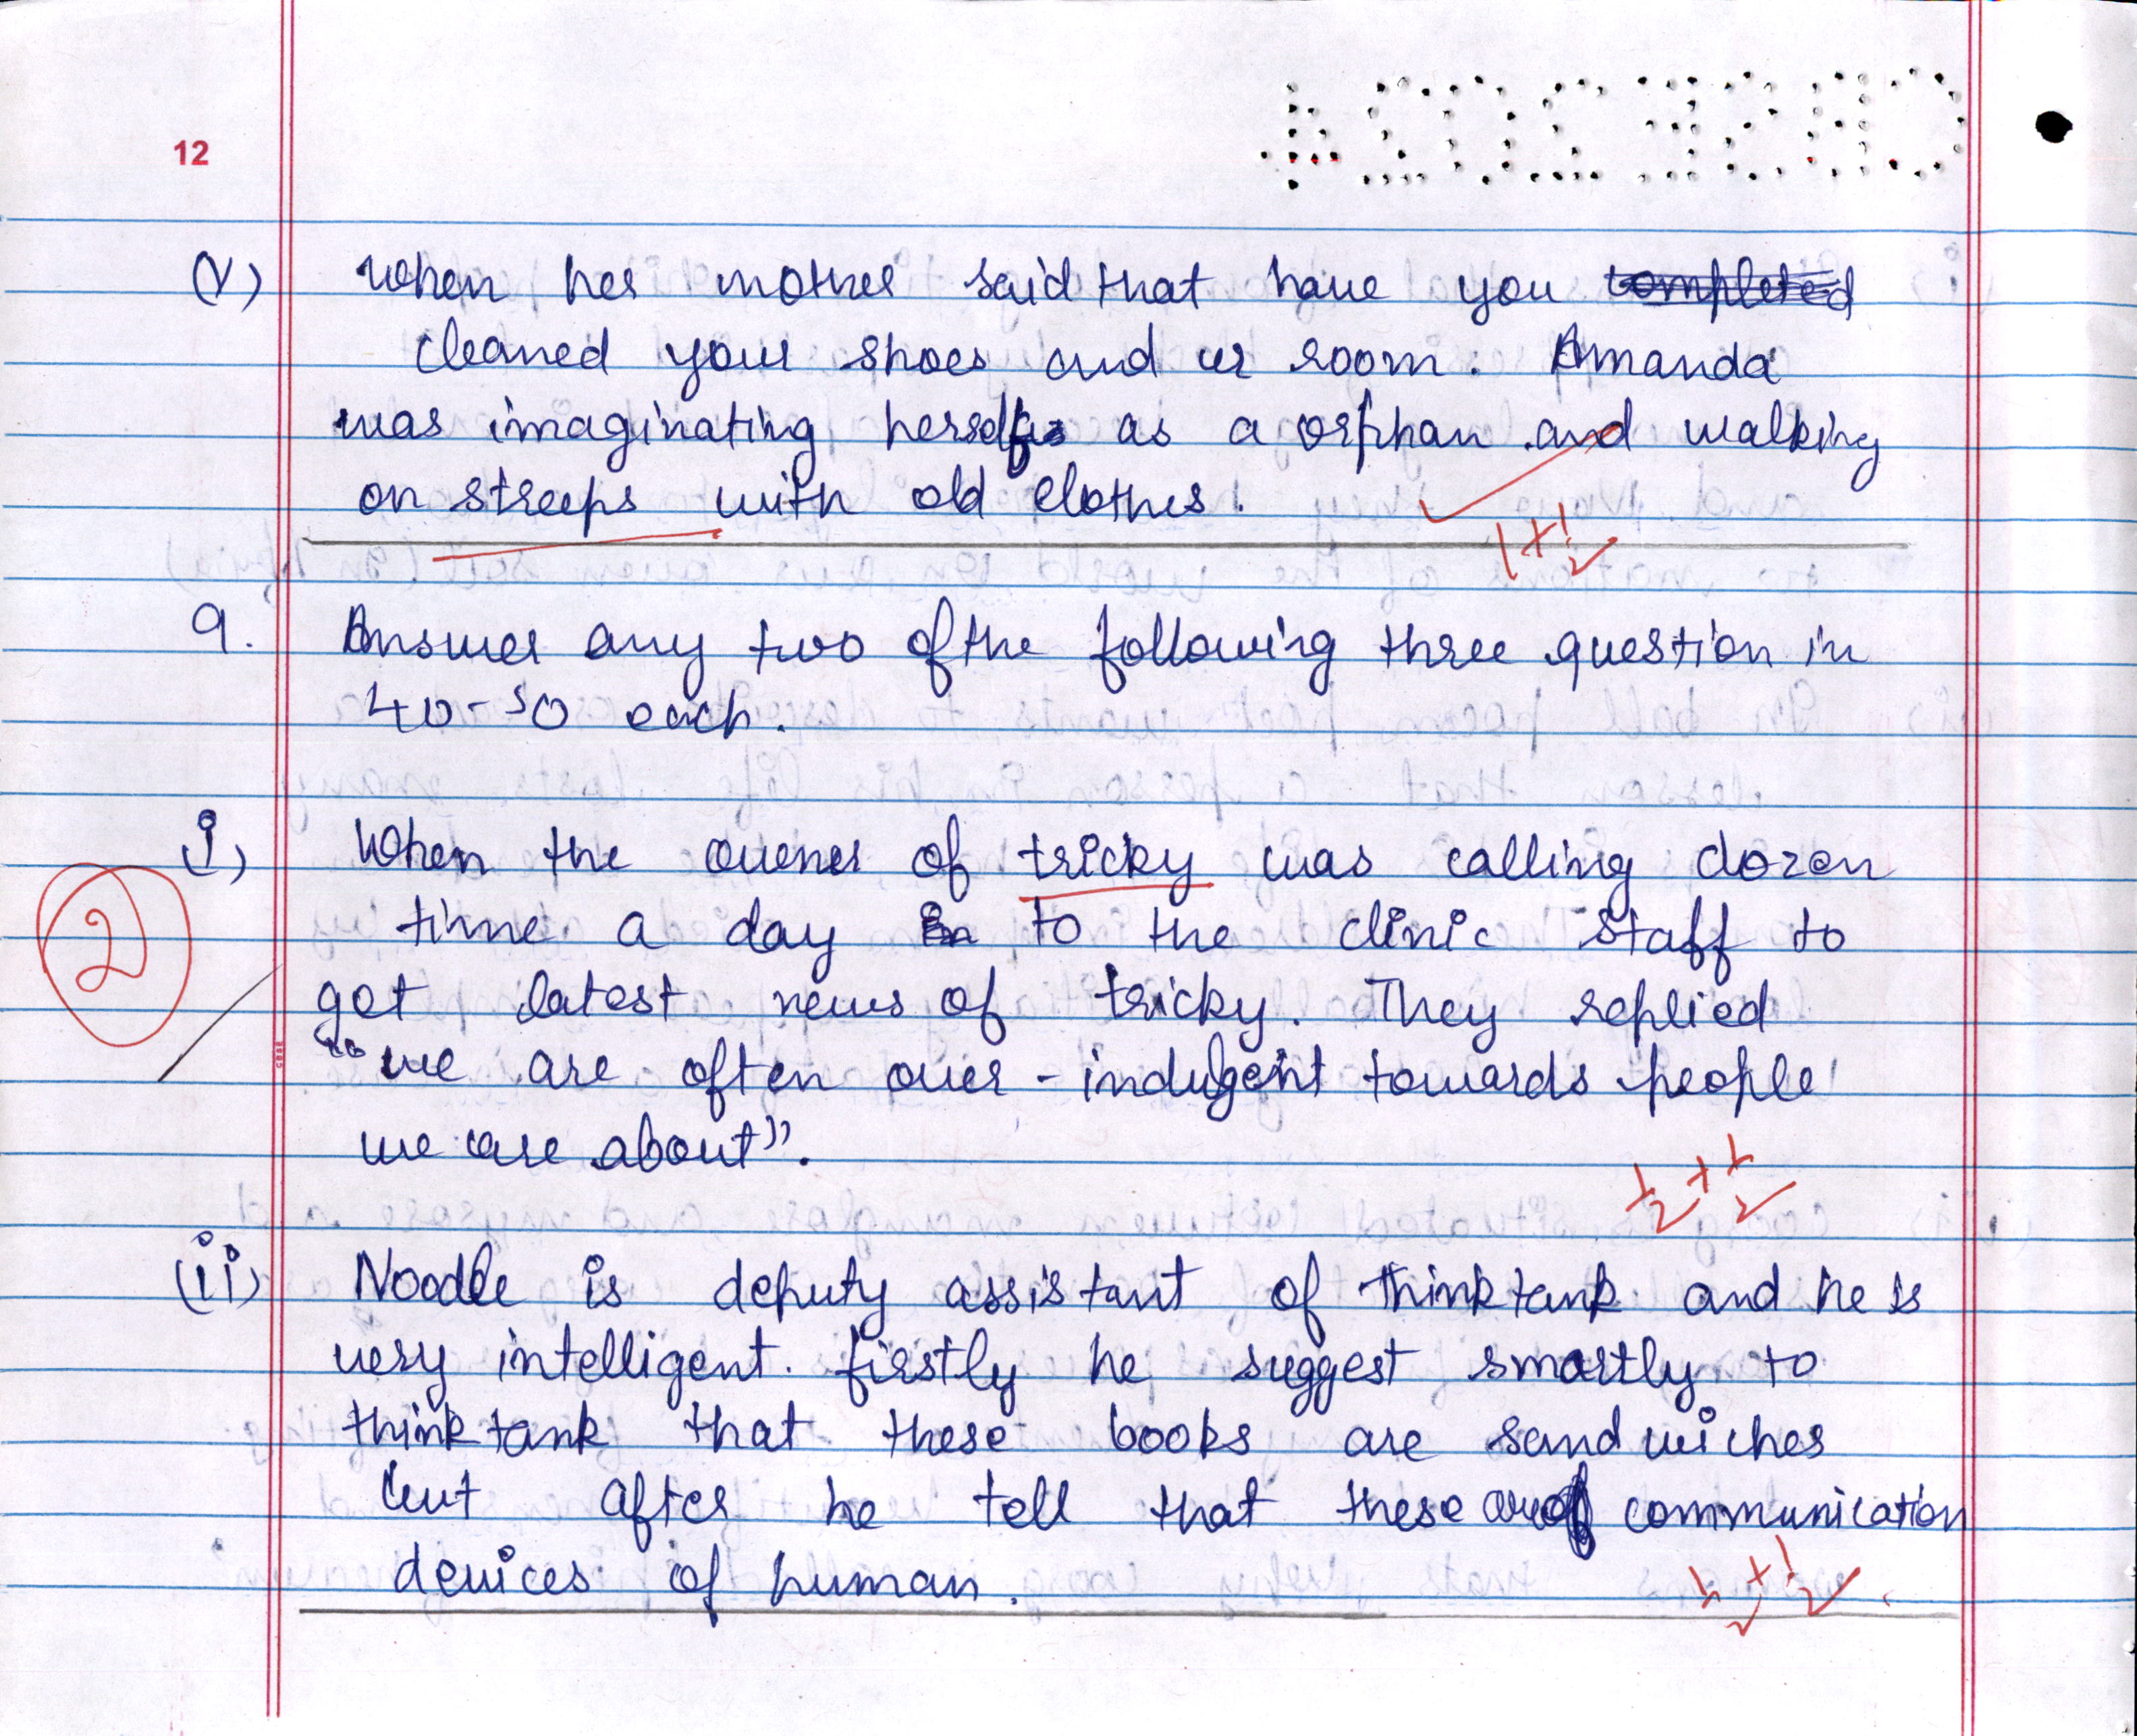 12
(V) When her mother said that have you completed
cleaned your shoes and ur room. Amanda
was imaginating herself as a orphan and walking
on streeps with old clothes.
1+½
9. Answer any two of the following three question in
40-50 each.
i) When the owener of tricky was calling dozen
time a day in to the clinic staff to
2
get latest news of tricky. They replied
"we are often over-indulgent towards people
we care about".
½+½
(ii) Noodle is deputy assistant of thinktank and he is
very intelligent. firstly he suggest smartly to
thinktank that these books are sandwiches
but after he tell that these are communication
devices of human.
½+½